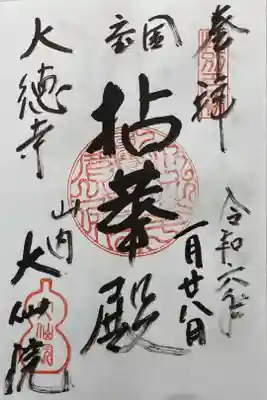 奉拝
令和六年
一月廿八日
国宝
拈華殿
大徳寺
山内
大仙院